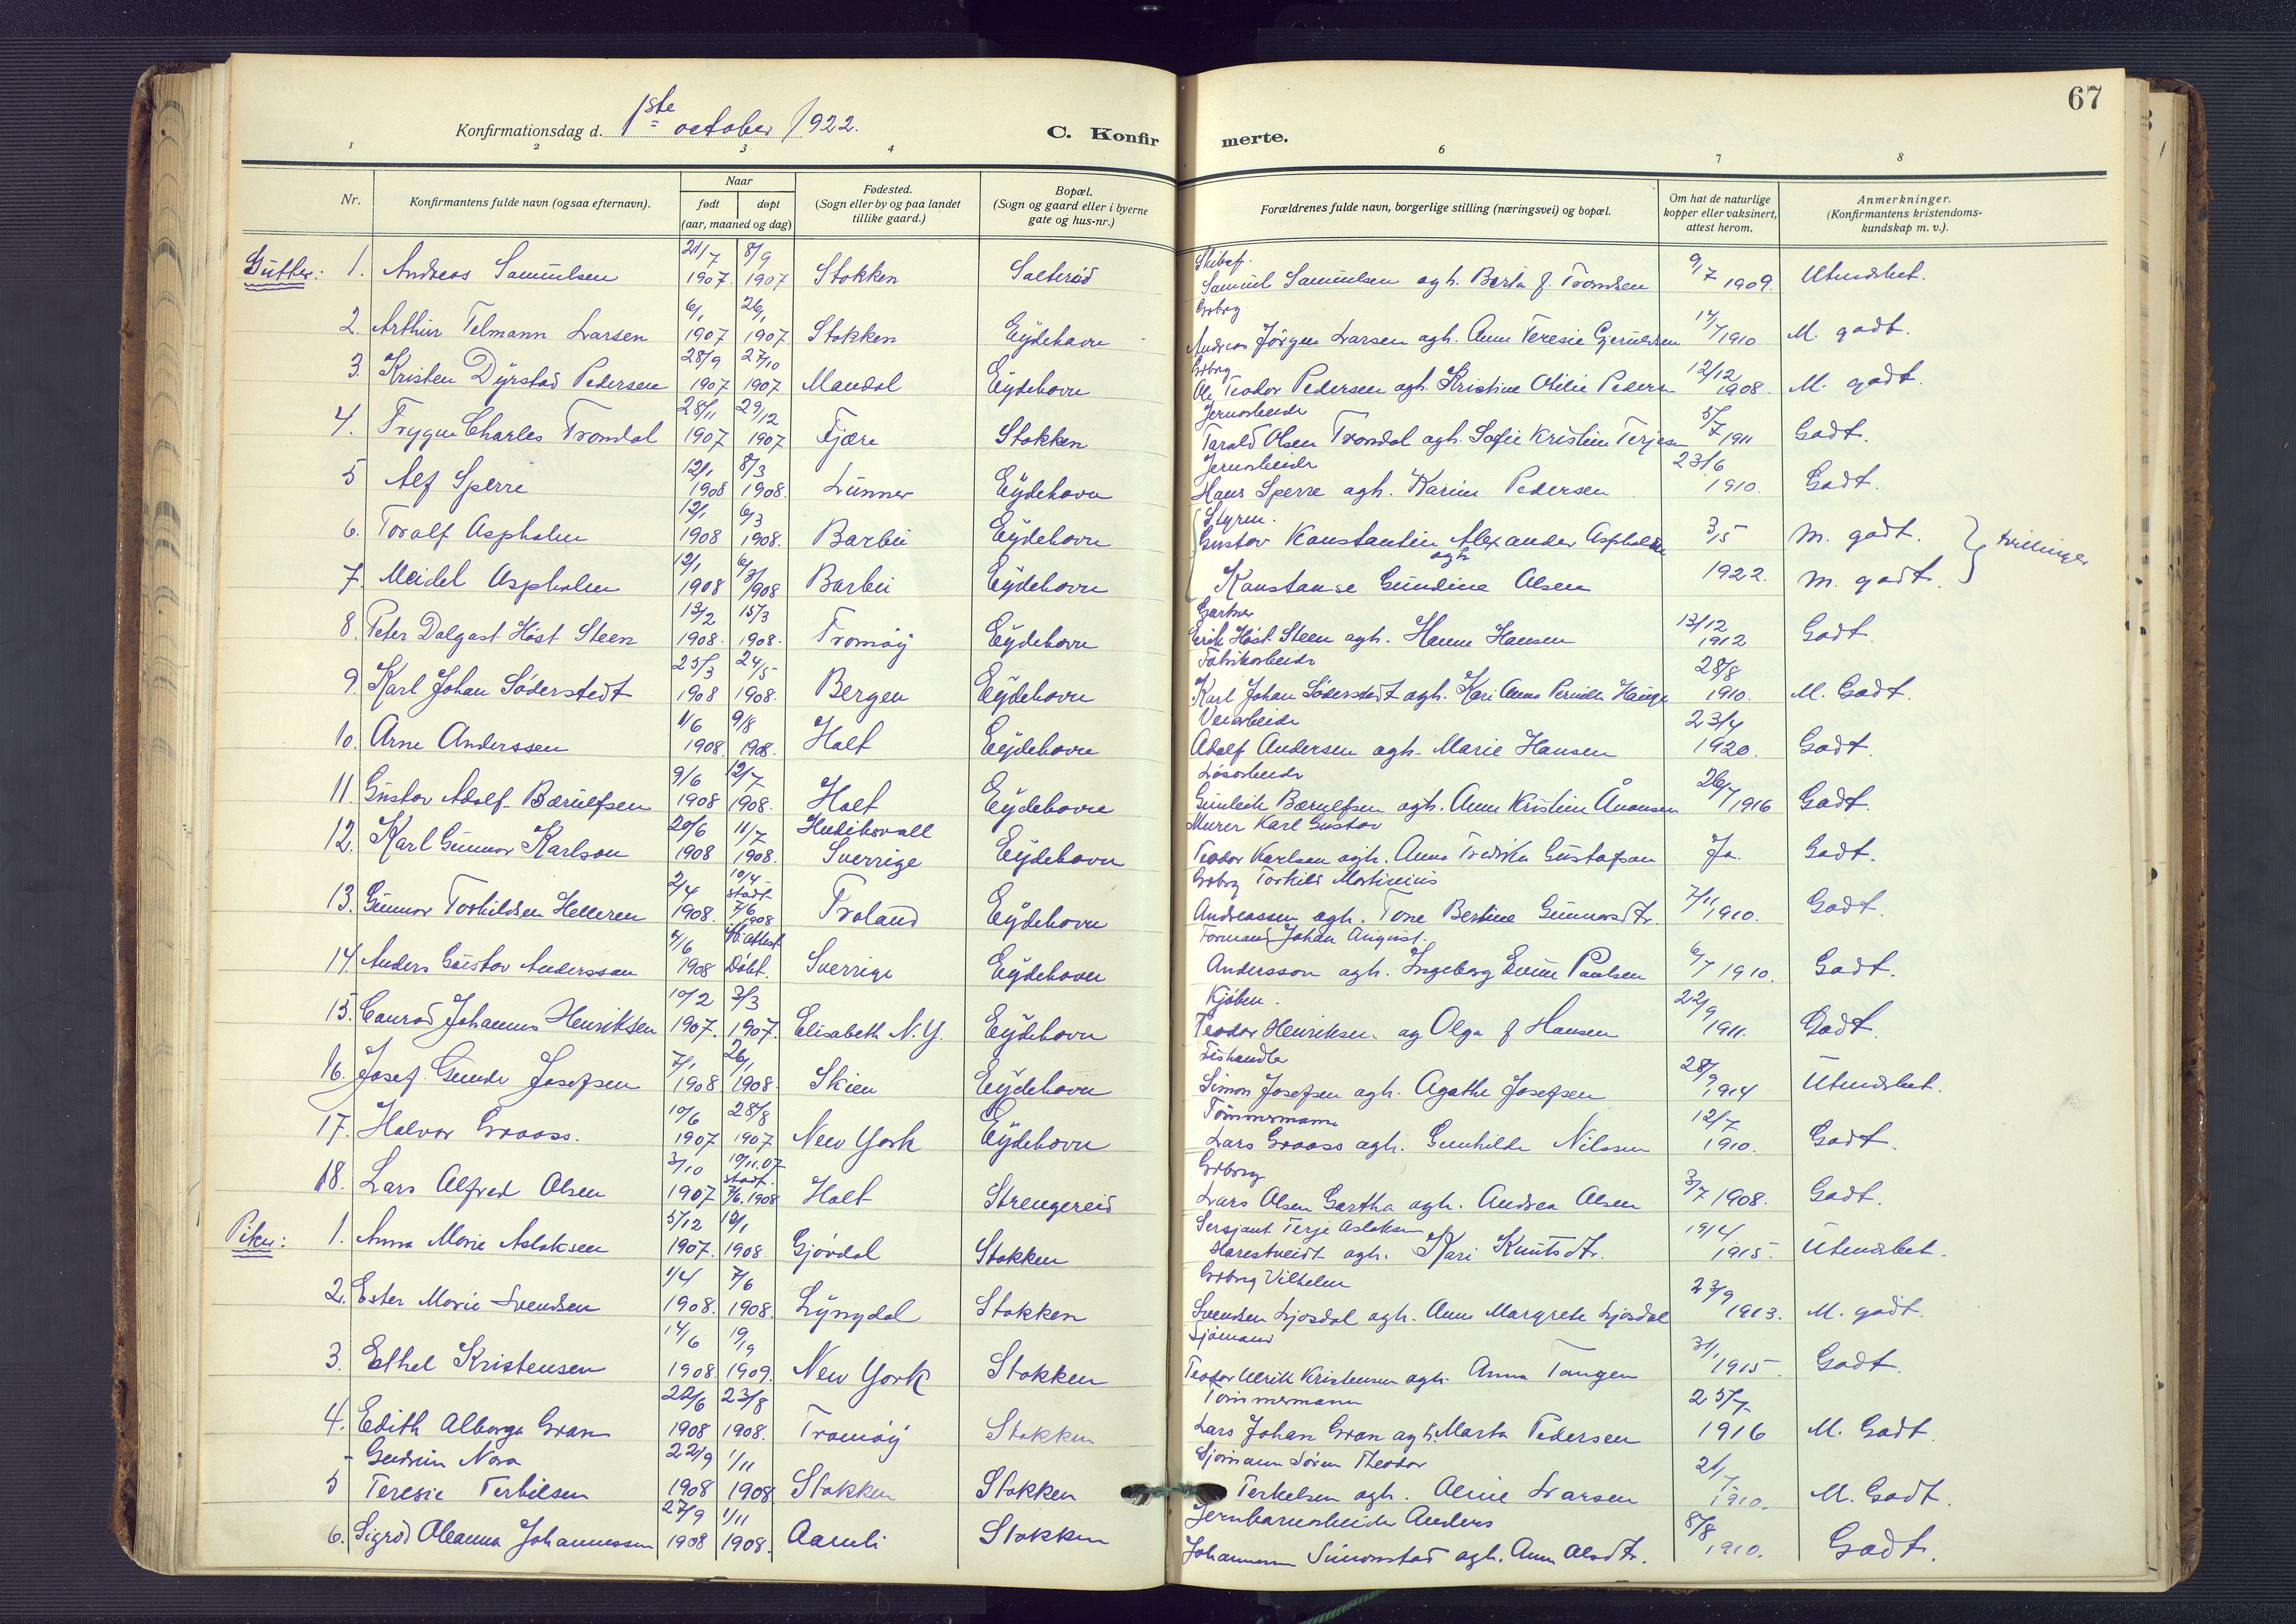 67
Konfirmationsdag d. 1ste october 1922.
C. Konfirmerte.
1 2 3 4 6 7 8
Nr. Konfirmantens fulde navn (ogsaa efternavn). Naar født døpt (aar, maaned og dag) Fødested. (Sogn eller by og paa landet tillike gaard.) Bopæl. (Sogn og gaard eller i byerne gate og hus-nr.) Forældrenes fulde navn, borgerlige stilling (næringsvei) og bopæl. Om hat de naturlige kopper eller vaksinert, attest herom. Anmerkninger. (Konfirmantens kristendomskundskap m. v.).
Gutter: 1. Andreas Samuelsen 21/7 1907. 8/9 1907 Stokken Salterød Skibsf. Samuel Samuelsen ogh. Berta f. Tromsen 9/7 1909. Utmerket.
2. Arthur Telmann Larsen 6/1 1907 26/1 1907 Stokken Eydehavn Grbrg Andreas Jörgen Larsen ogh. Anne Teresie Gjeruldsen 14/7 1910 M. godt.
3. Kristen Dyrstad Pedersen 28/9 1907 27/10 1907 Mandal Eydehavn Grbrg Ole Teodor Pedersen ogh. Kristine Otilie Peders 12/12 1908. M. godt.
4. Trygve Charles Tromdal 28/11 1907 29/12 1907 Fjære Stokken Jernarbeider Tarald Olsen Tromdal ogh. Sofie Kristine Terjesen 5/7 1911 Godt.
5 Alf Sperre 12/1 1908 8/3 1908. Lunner Eydehavn Jernarbeider Hans Sperre ogh. Karine Pedersen 23/6 1910. Godt.
6. Toralf Aspholm 12/1 1908 6/3 1908. Barbu Eydehavn Styrm. Gustav Konstantin Alexander Aspholm ogh 3/5 M. godt. } tvillinger
7. Meidel Aspholm 12/1 1908 6/3 1908 Barbu Eydehavn Konstanse Gundine Olsen 1922. M. godt.
8. Peter Dalgast Høst Steen 13/2 1908. 15/3 1908. Tromøy Eydehavn Gartner Erik Høst Steen ogh. Hanne Hansen 13/12 1912 Godt.
9. Karl Johan Söderstedt 25/3 1908 24/5 1908. Bergen Eydehavn Fabrikarbeider Karl Johan Söderstedt ogh. Kari Anna Pernille Hauge 28/8 1910. M. Godt.
10. Arne Anderssen 1/6 1908. 9/8 1908. Holt Eydehavn Veiarbeider Adolf Andersen ogh. Marie Hansen 23/4 1920. Godt.
11. Gustav Adolf Bærulfsen 9/6 1908 12/7 1908. Holt Eydehavn Løsarbeider Gunleik Bærulfsen ogh. Anne Kristine Ånonsen 26/7 1916 Godt.
12. Karl Gunnar Karlson 20/6 1908 11/7 1908. Hudiksvall Sverrige Eydehavn Murer Karl Gustav Teodor Karlsen ogh. Anna Fredrika Gustafson Ja. Godt.
13. Gunnar Torkildsen Helleren 2/4 1908. 10/4 stadf. 7/6 1908 Froland Eydehavn Grbrg Torkild Martinius Andreassen ogh. Tone Bertine Gunnarsdtr. 7/11 1910. Godt.
14. Anders Gustav Andersson 4/6 1908 Døbt. Sverrige Eydehavn Formand Johan August. Andersson ogh. Ingeborg Evine Paulsen 6/7 1910. Godt.
15. Conrad Johannes Henriksen 10/2 1907. 3/3 1907. Elisabeth N.Y. Eydehavn Kjøbm. Teodor Henriksen. og Olga f Hansen 22/9 1911. Godt.
16. Josef Gunde Josefsen 7/1 1908 26/1 1908. Skien Eydehavn Fishandler Simon Josefsen ogh. Agathe Josefsen 28/9 1914 Utmerket.
17. Halvor Graass. 10/6 1907 28/8 1907 New York Eydehavn Tømmermann Lars Graass ogh. Gunhilde Nilssen 12/7 1910. Godt.
18. Lars Alfred Olsen 3/10 1907 10/11.07 stadf. 7/6.1908 Holt Strengereid Grbrg Lars Olsen Gartha ogh. Andrea Olsen 3/7 1908. Godt.
Piker: 1. Anna Marie Aslaksen 5/12 1907. 12/1 1908. Gjøvdal Stokken Sersjant Terje Aslaksen Harestveidt ogh. Kari Knutsdtr. 19/4 1915. Utmerket.
2. Ester Marie Svendsen 1/4 1908. 7/6 1908. Lyngdal Stokken Grbrg Vilhelm Svendsen Ljosdal ogh. Anne Margrete Ljosdal 23/9 1913. M. godt.
3. Ethel Kristensen 14/6 1908. 19/9 1909. New York Stokken Sjømand Teodor Ulrik Kristensen ogh. Anna Tangen 31/1 1915. Godt.
4. Edith Alborga Gran 22/6 1908 23/8 1908. Tromøy Stokken Tømmermann Lars Johan Gran ogh. Marta Pedersen 25/7 1916 M. Godt.
5 Gudrun Nora Teresie Terkilsen 22/9 1908 1/11 1908 Stokken Stokken Sjømann Søren Theodor Terkelsen ogh. Aline Larsen 21/7 1910. M. Godt.
6. Sigrid Oleanna Johannessen 27/9 1908 1/11 1908. Aamli Stokken Jernbanearbeider Anders Johannesen Simonstad ogh. Anne Olsdtr. 8/8 1910. Godt.